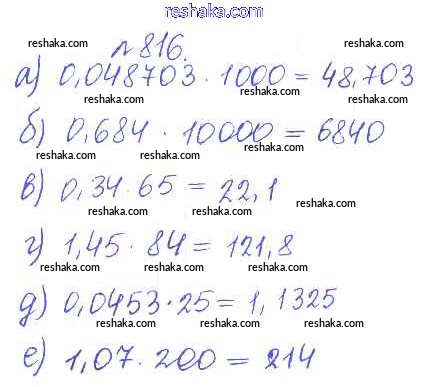 reshaka.com
№ 816.
reshaka.com reshaka.com
а) 0,048703 · 1000 = 48,703
reshaka.com reshaka.com reshaka.com
б) 0,684 · 10000 = 6840
reshaka.com reshaka.com reshaka.com
в) 0,34 · 65 = 22,1
reshaka.com
reshaka.com reshaka.com
г) 1,45 · 84 = 121,8
reshaka.com reshaka.com reshaka.com
д) 0,0453 · 25 = 1,1325
reshaka.com reshaka.com reshaka.com
е) 1,07 · 200 = 214
reshaka.com reshaka.com